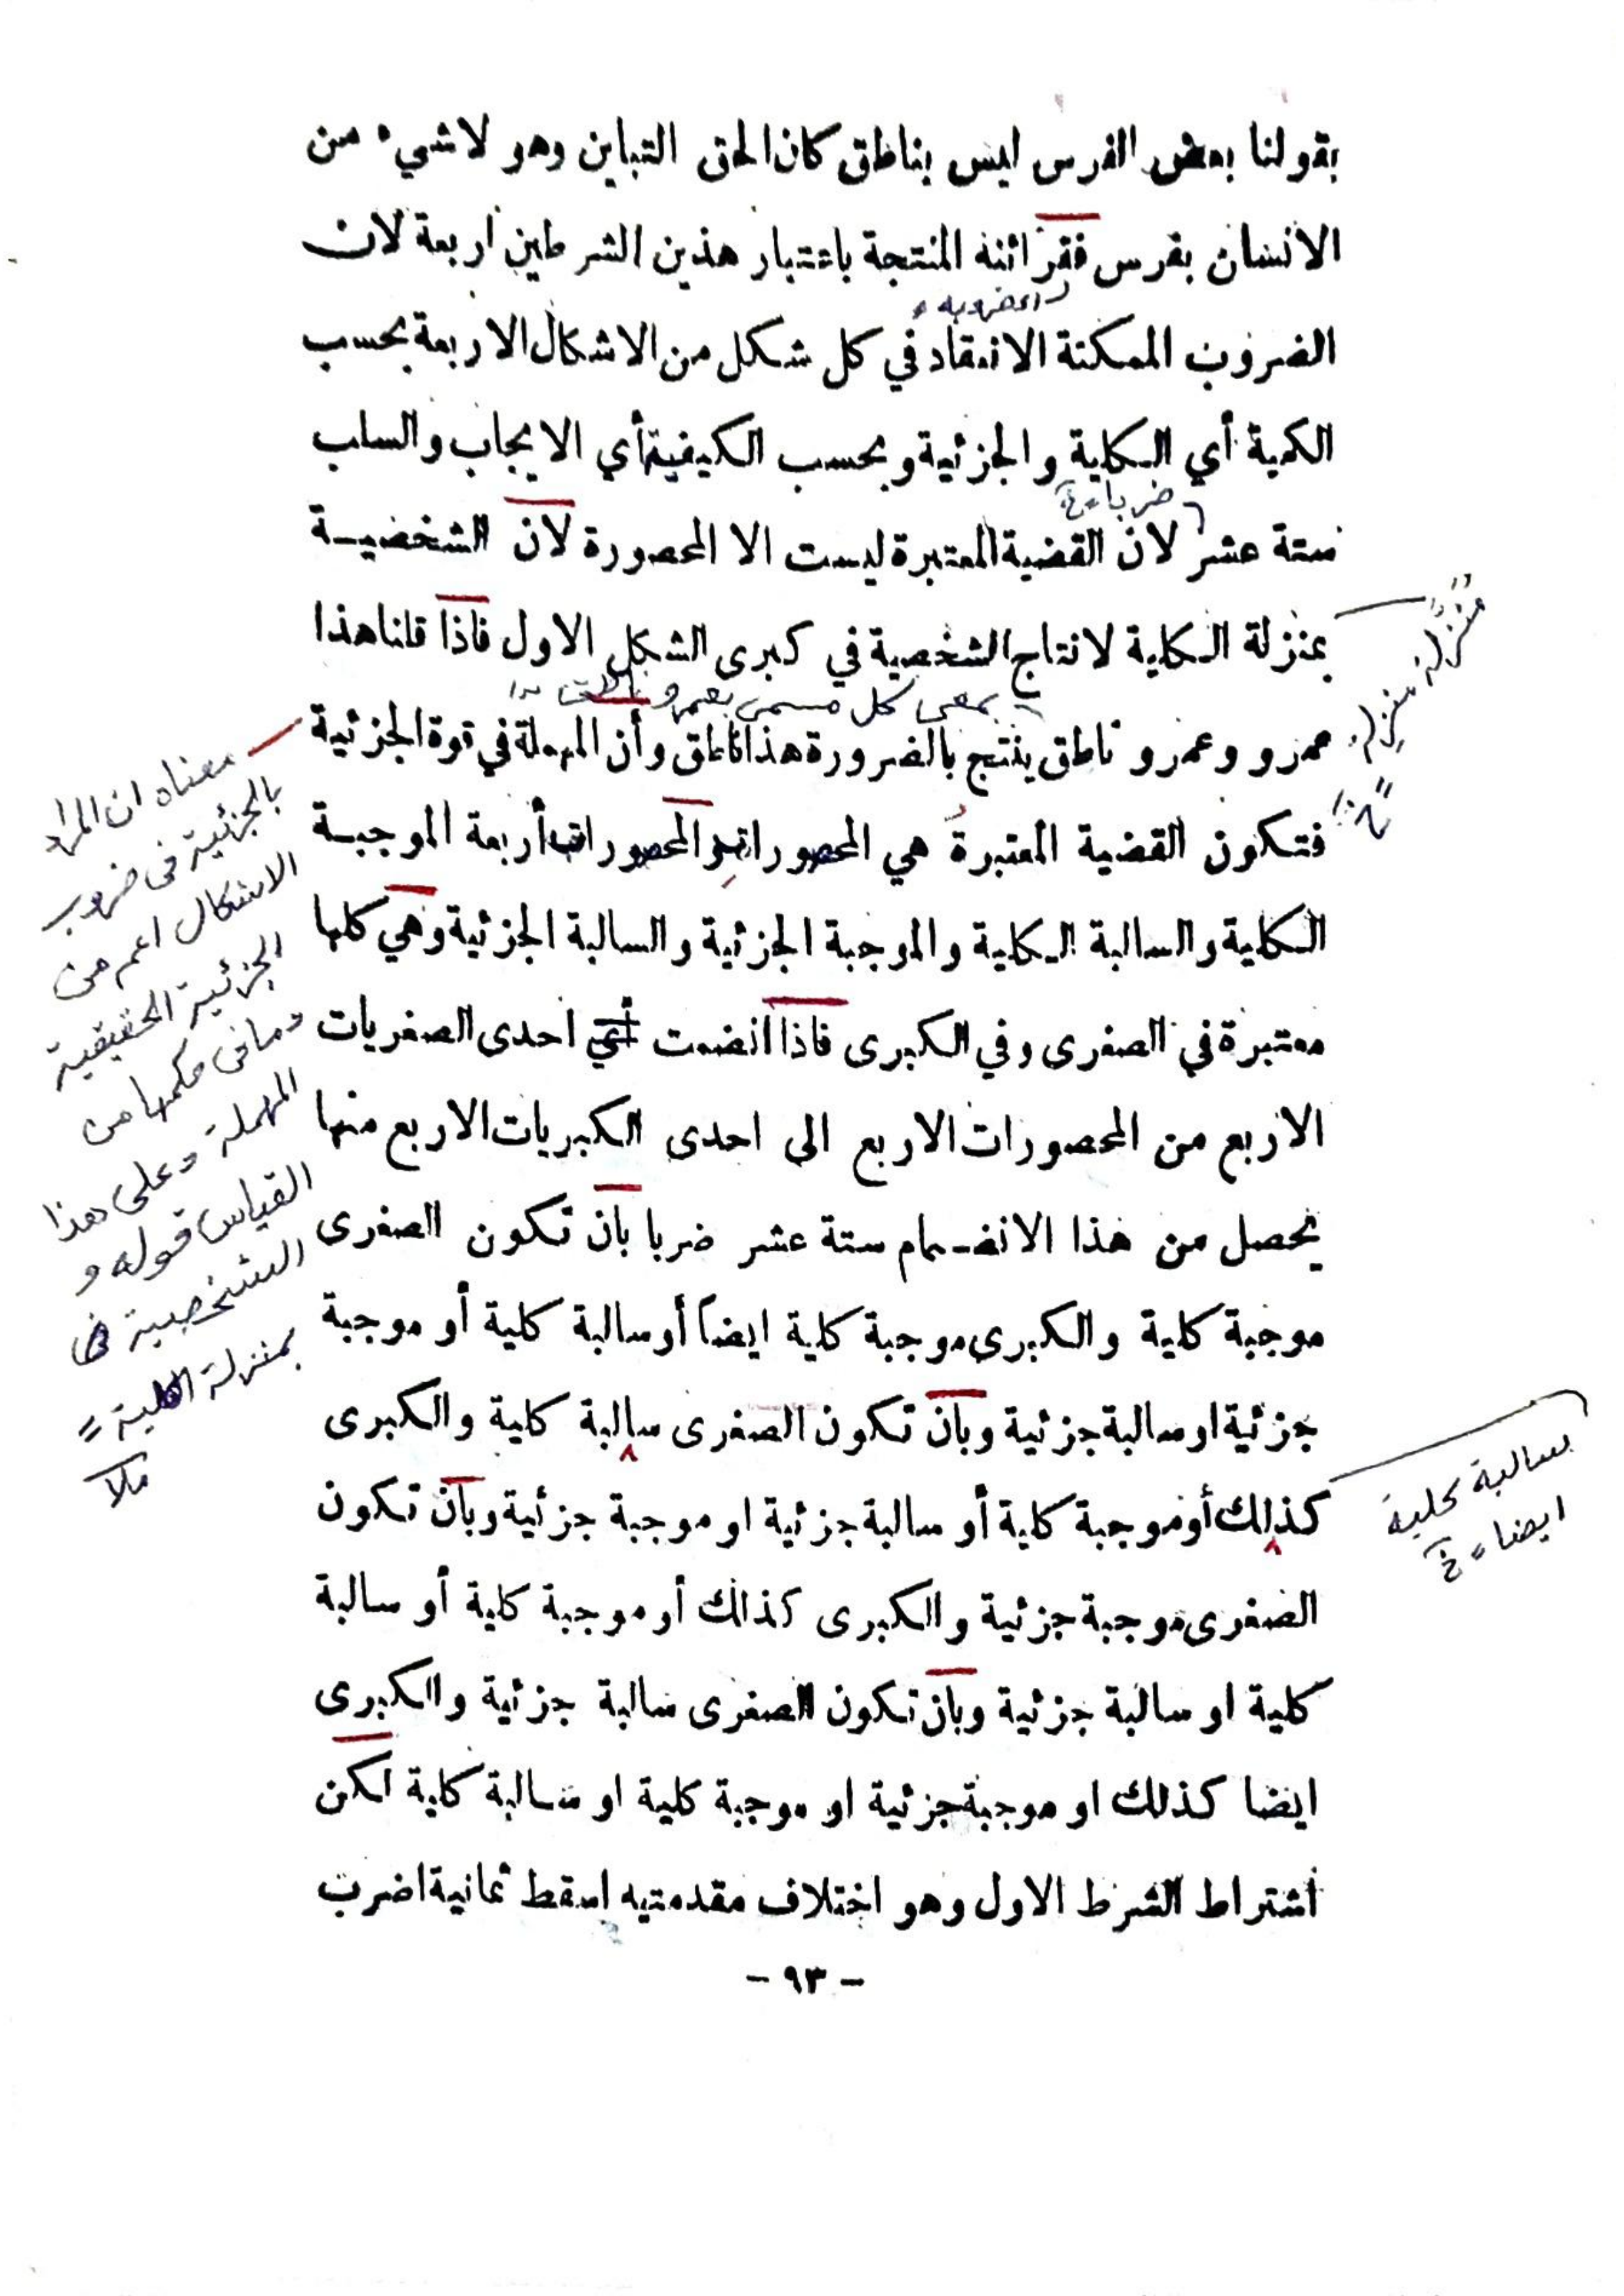 بقولنا بعض الفرس ليس بناطق كان الحق التباين وهو لا شيء من
الانسان بفرس فقرائنه المنتجة باعتبار هذين الشرطين اربعة لان
الضروب الممكنة الانعقاد في كل شكل من الاشكال الاربعة بحسب
الكمية أي الكلية والجزئية وبحسب الكيفية أي الايجاب والسلب
ضربا
ستة عشر لان القضية المعتبرة ليست الا المحصورة لان الشخصية
بمنزلة الكلية لانتاج الشخصية في كبرى الشكل الاول فاذا قلنا هذا
بمعنى كل مسمى بعمرو ناطق
عمرو وعمرو ناطق ينتج بالضرورة هذا ناطق وأن المهملة في قوة الجزئية
فتكون القضية المعتبرة هي المحصورات والمحصورات أربعة الموجبة
الكلية والسالبة الكلية والموجبة الجزئية والسالبة الجزئية وهي كلها
معتبرة في الصغرى وفي الكبرى فاذا انضمت احدى الصغريات
الاربع من المحصورات الاربع الى احدى الكبريات الاربع منها
يحصل من هذا الانضمام ستة عشر ضربا بان تكون الصغرى
موجبة كلية والكبرى موجبة كلية ايضاً أو سالبة كلية أو موجبة
جزئية او سالبة جزئية وبان تكون الصغرى سالبة كلية والكبرى
كذلك أو موجبة كلية أو سالبة جزئية او موجبة جزئية وبان تكون
الصغرى موجبة جزئية والكبرى كذلك أو موجبة كلية أو سالبة
كلية او سالبة جزئية وبان تكون الصغرى سالبة جزئية والكبرى
ايضا كذلك او موجبة جزئية او موجبة كلية او سالبة كلية لكن
اشتراط الشرط الاول وهو اختلاف مقدمتيه اسقط ثمانية اضرب
- ٩٣ -
معناه ان المراد
بالجزئية في ضروب
الاشكال اعم من
الجزئية الحقيقية
وما في حكمها من
المهملة وعلى هذا
القياس قوله و
الشخصية في
بمنزلة الكلية =
ملا
سالبة كلية
ايضا